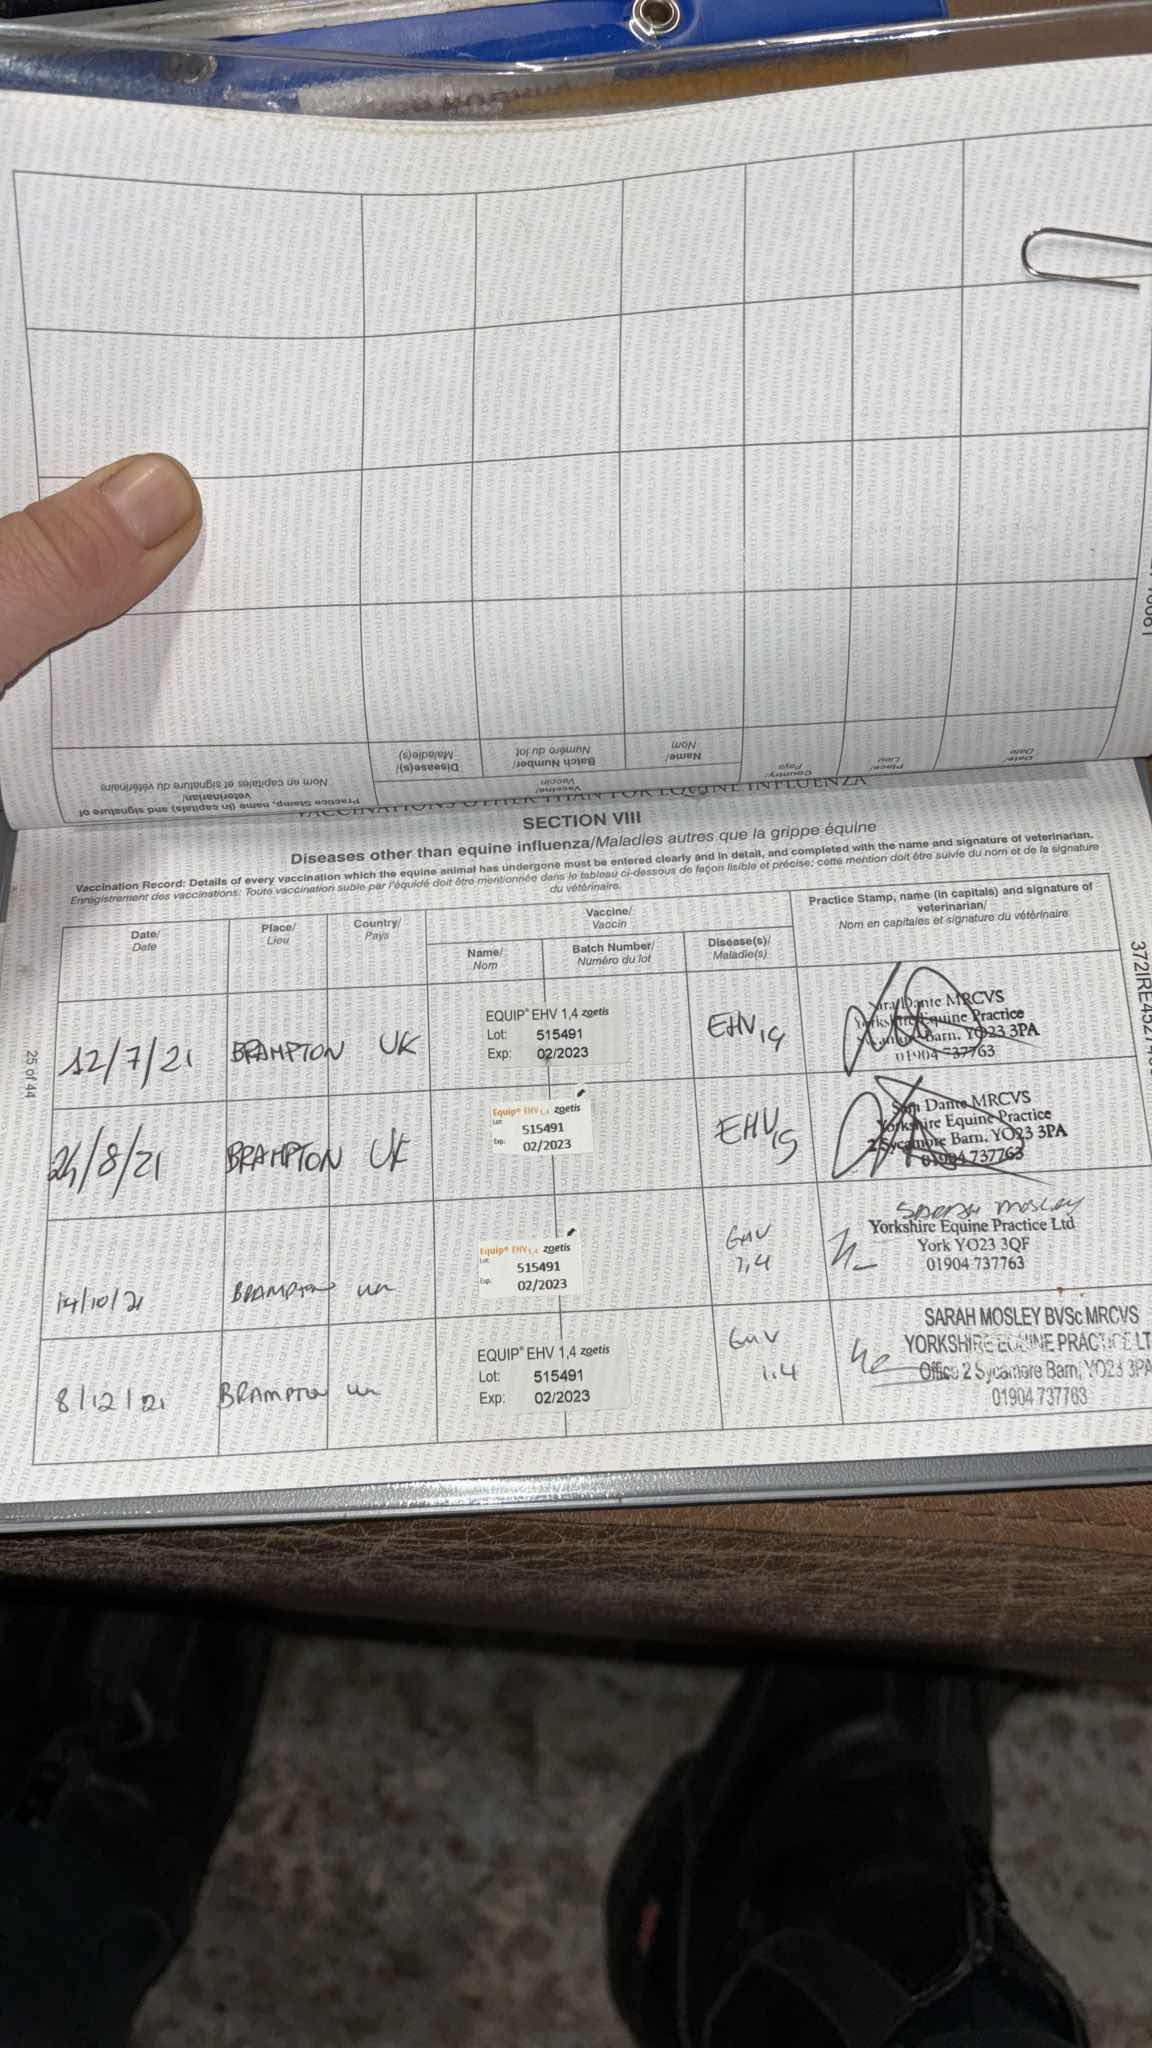 Practice Stamp, name (in capitals) and signature of
veterinarian/
Nom en capitales et signature du vétérinaire
Vaccine/
Vaccin
Disease(s)/
Maladie(s)
Batch Number/
Numéro du lot
Name/
Nom
Country/
Pays
Place/
Lieu
Date/
Date
VACCINATIONS OTHER THAN FOR EQUINE INFLUENZA
SECTION VIII
Diseases other than equine influenza/Maladies autres que la grippe équine
Vaccination Record: Details of every vaccination which the equine animal has undergone must be entered clearly and in detail, and completed with the name and signature of veterinarian.
Enregistrement des vaccinations: Toute vaccination subie par l'équidé doit être mentionnée dans le tableau ci-dessous de façon lisible et précise; cette mention doit être suivie du nom et de la signature
du vétérinaire.
Date/
Date
Place/
Lieu
Country/
Pays
Vaccine/
Vaccin
Name/
Nom
Batch Number/
Numéro du lot
Disease(s)/
Maladie(s)
Practice Stamp, name (in capitals) and signature of
veterinarian/
Nom en capitales et signature du vétérinaire
12/7/21 BRAMPTON UK
EQUIP® EHV 1,4 zoetis
Lot: 515491
Exp: 02/2023
EHV
Dante MRCVS
Yorkshire Equine Practice
Barn, YO23 3PA
01904 737763
24/8/21 BRAMPTON UK
Equip® EHV 1,4 zoetis
Lot: 515491
Exp: 02/2023
EHV
Dante MRCVS
Yorkshire Equine Practice
2 Sycamore Barn, YO23 3PA
01904 737763
14/10/21 BRAMPTON UK
Equip® EHV 1,4 zoetis
Lot: 515491
Exp: 02/2023
EHV
1,4
SARAH MOSLEY
Yorkshire Equine Practice Ltd
York YO23 3QF
01904 737763
8/12/21 BRAMPTON UK
EQUIP® EHV 1,4 zoetis
Lot: 515491
Exp: 02/2023
EHV
1.4
SARAH MOSLEY BVSc MRCVS
YORKSHIRE EQUINE PRACTICE LT
Office 2 Sycamore Barn, YO23 3PA
01904 737763
25 of 44